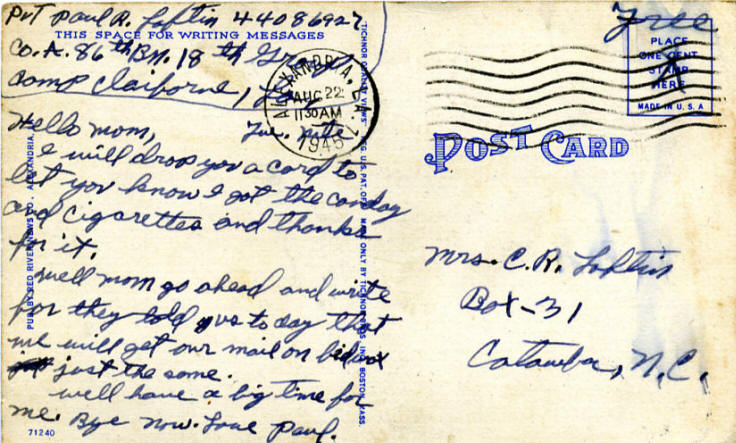 Pvt Paul R. Loftin 44086927
THIS SPACE FOR WRITING MESSAGES
Co. A. 86th Bn. 18th
Camp Claiborne, La.
Hello mom,
Tue. nite
I will drop you a card to
let you know I got the canday
and cigarettes and thanks
for it.
well mom go ahead and write
for they told us to day that
we will get our mail on
just the same.
well have a big time for
me. Bye now. Love Paul.
71240
PUB. BY RED RIVER NEWS CO., ALEXANDRIA,
ALEXANDRIA, LA.
AUG 22
1130 AM
1945
Free
PLACE
ONE CENT
STAMP
HERE
MADE IN U. S. A
POST CARD
Mrs. C. R. Loftin
Box-31
Catawba, N.C.